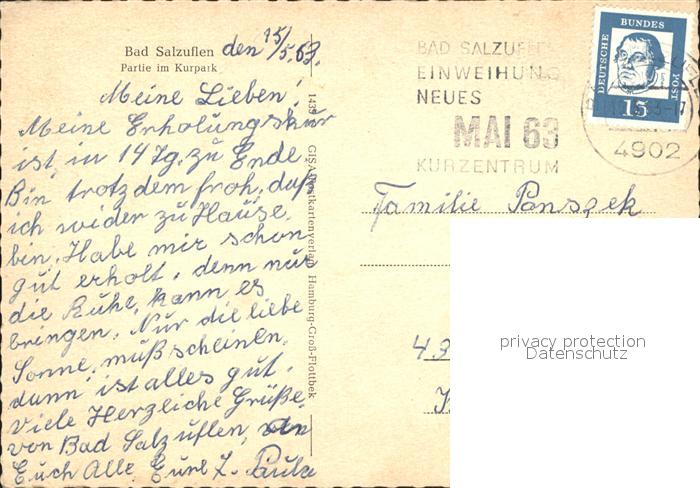 Bad Salzuflen den 15/5.63.
Partie im Kurpark
Meine Lieben!
Meine Erholungskur
ist in 14 Tg. zu Ende.
Bin trotzdem froh, daß
ich wider zu Hause
bin. Habe mir schon
gut erholt, denn nur
die Ruhe, kann es
bringen. Nur die liebe
Sonne, muß scheinen,
dann ist alles gut.
Viele Herzliche Grüße,
von Bad Salzuflen, an
Euch Alle. Eure L. Paula
143 GISA Postkartenverlag Hamburg-Groß-Flottbek
BAD SALZUFLEN
EINWEIHUNG
NEUES
MAI 63
KURZENTRUM
DEUTSCHE
BUNDES
POST
15
4902
Familie Panszek
43
privacy protection
Datenschutz